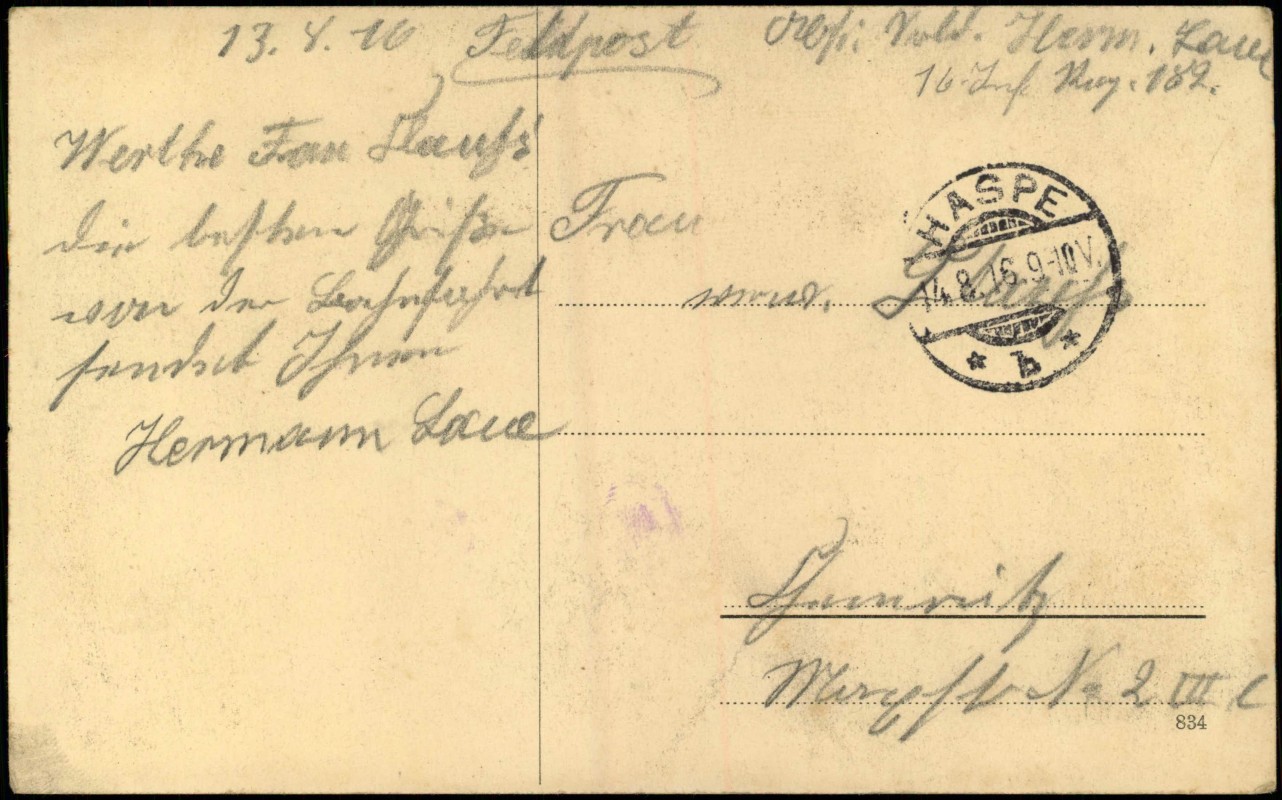 13.8.16 Feldpost
Abs: Sold. Herm. Laue
16. Inf. Reg. 182.
Werthe Frau
die besten Grüße
von der Bahnfahrt
sendet Ihnen
Hermann Laue
Frau
verw.
HASPE
14.8.16.9-10V.
* b *
Chemnitz
No 2 III
834